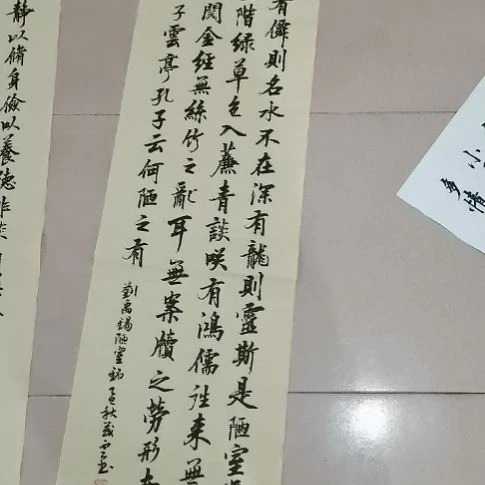 小
多情
有僊則名水不在深有龍則靈斯是陋室
階緑草色入簾青談咲有鴻儒往来無
閱金經無絲竹之亂耳無案牘之勞形
子雲亭孔子云何陋之有
劉禹錫陋室銘
靜以脩身儉以養德非